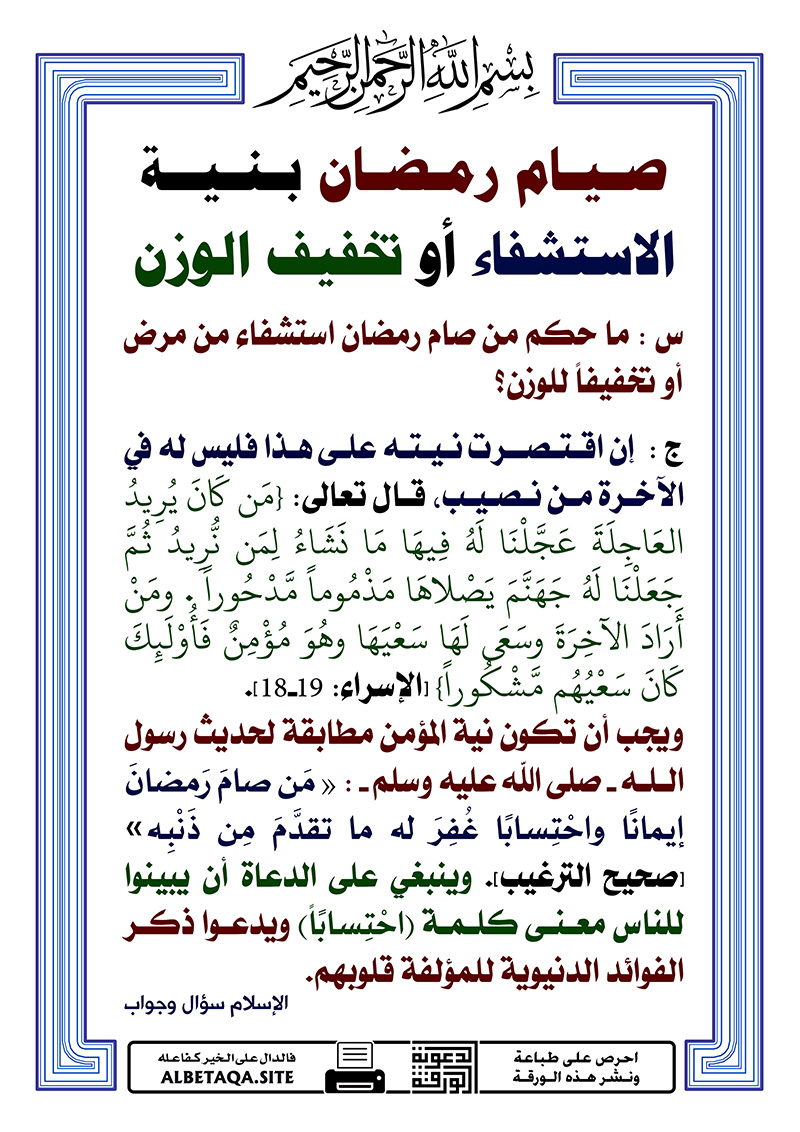 بسم الله الرحمن الرحيم
صيام رمضان بنية
الاستشفاء أو تخفيف الوزن
س : ما حكم من صام رمضان استشفاء من مرض
أو تخفيفاً للوزن؟
ج : إن اقتصرت نيته على هذا فليس له في
الآخرة من نصيب، قال تعالى: {مَن كَانَ يُرِيدُ
العَاجِلَةَ عَجَّلْنَا لَهُ فِيهَا مَا نَشَاءُ لِمَن نُّرِيدُ ثُمَّ
جَعَلْنَا لَهُ جَهَنَّمَ يَصْلاهَا مَذْمُوماً مَّدْحُوراً . ومَنْ
أَرَادَ الآخِرَةَ وسَعَى لَهَا سَعْيَهَا وهُوَ مُؤْمِنٌ فَأُوْلَئِكَ
كَانَ سَعْيُهُم مَّشْكُوراً} [الإسراء: 19ـ18].
ويجب أن تكون نية المؤمن مطابقة لحديث رسول
الله ـ صلى الله عليه وسلم ـ : « مَن صامَ رَمضانَ
إيمانًا واحْتِسابًا غُفِرَ له ما تقدَّمَ مِن ذَنْبِه»
[صحيح الترغيب]. وينبغي على الدعاة أن يبينوا
للناس معنى كلمة (احْتِساباً) ويدعوا ذكر
الفوائد الدنيوية للمؤلفة قلوبهم.
الإسلام سؤال وجواب
احرص على طباعة
ونشر هذه الورقة
الورقة الدعوية
فالدال على الخير كفاعله
ALBETAQA.SITE